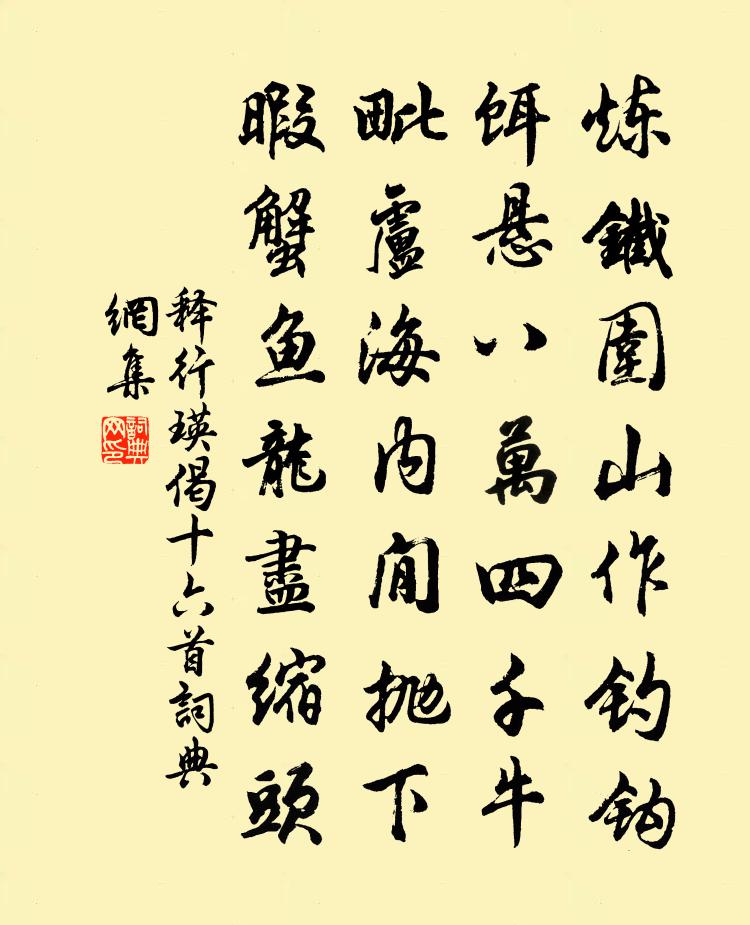 炼鐵圍山作钓钩
饵悬八萬四千牛
毗盧海内閒抛下
暇蟹鱼龍盡缩頭
释行瑛偈十六首詞典
網集
詞典
网印